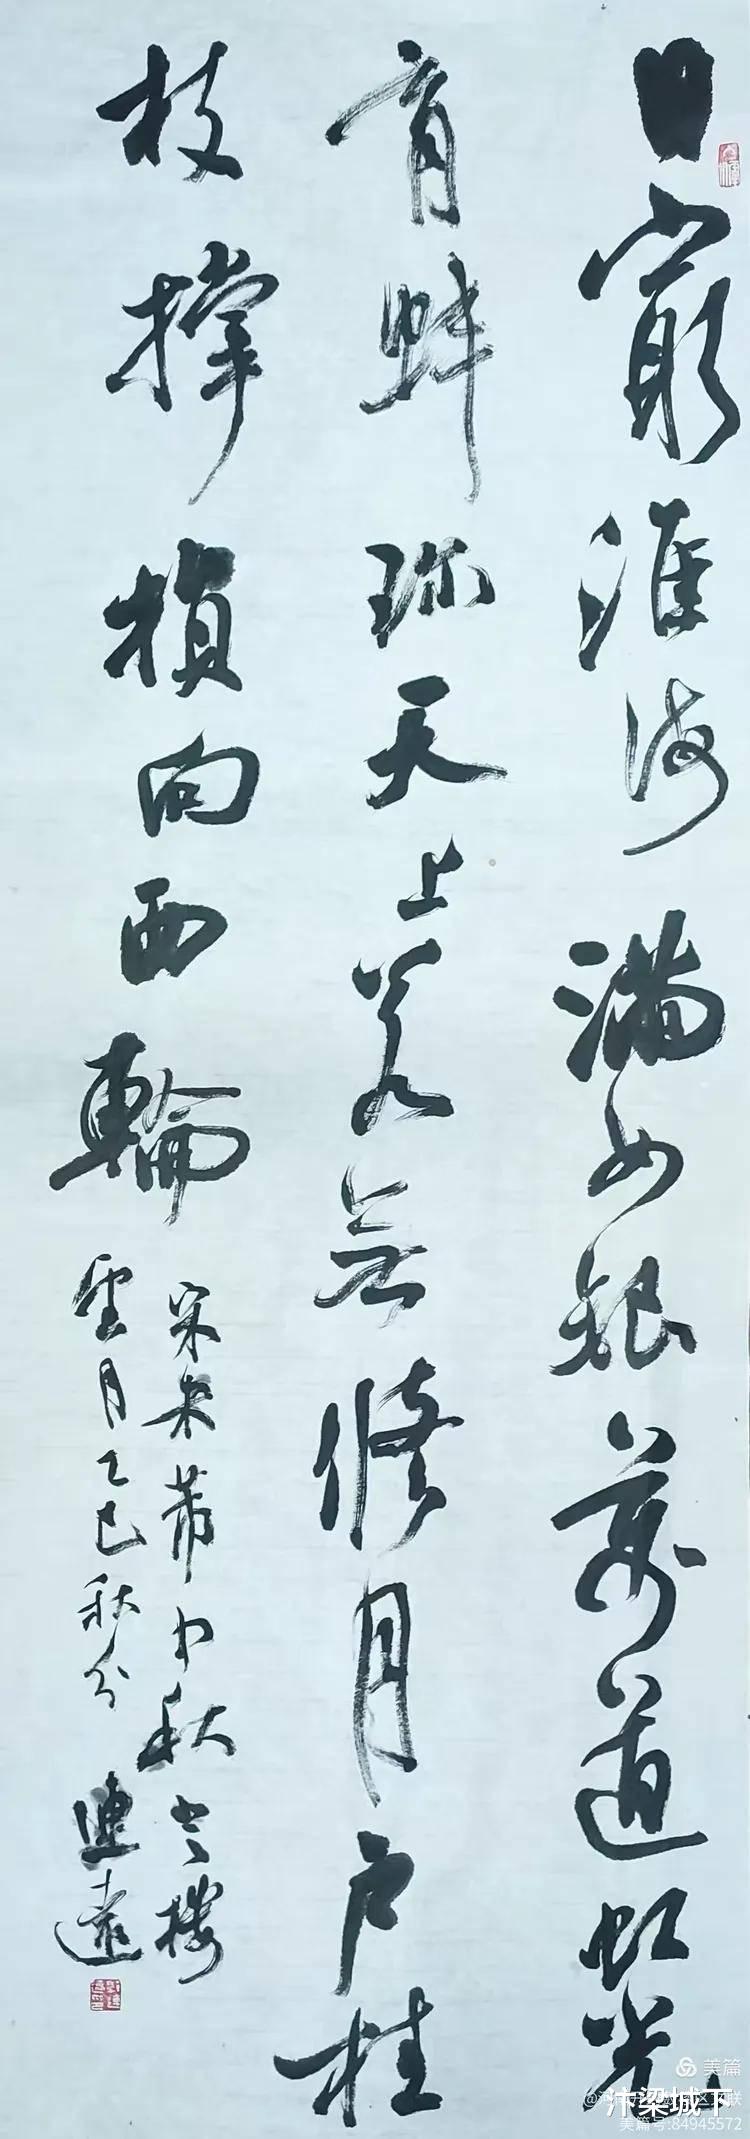 目窮淮海滿如銀萬道虹光
育蚌珎天上若無修月户桂
枝撑損向西輪
宋米芾中秋登楼
望月乙巳秋分 連遠
美篇
汴梁城下
美篇号:84945572